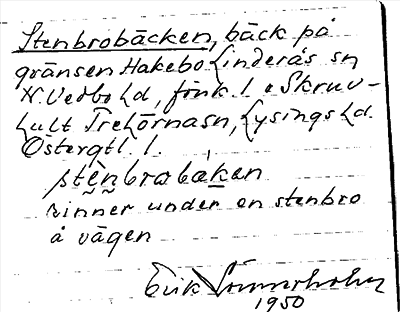 Stenbrobäcken, bäck på
gränsen Hakebo Linderås sn
N. Vedbo hd, förk. l. o Skruv-
hult Trehörnasn, Lysings hd.
Östergtl. l.
stènbrobäken
rinner under en stenbro
å vägen
Erik
1950